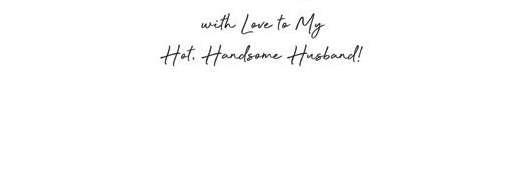 with Love to My
Hot, Handsome Husband!